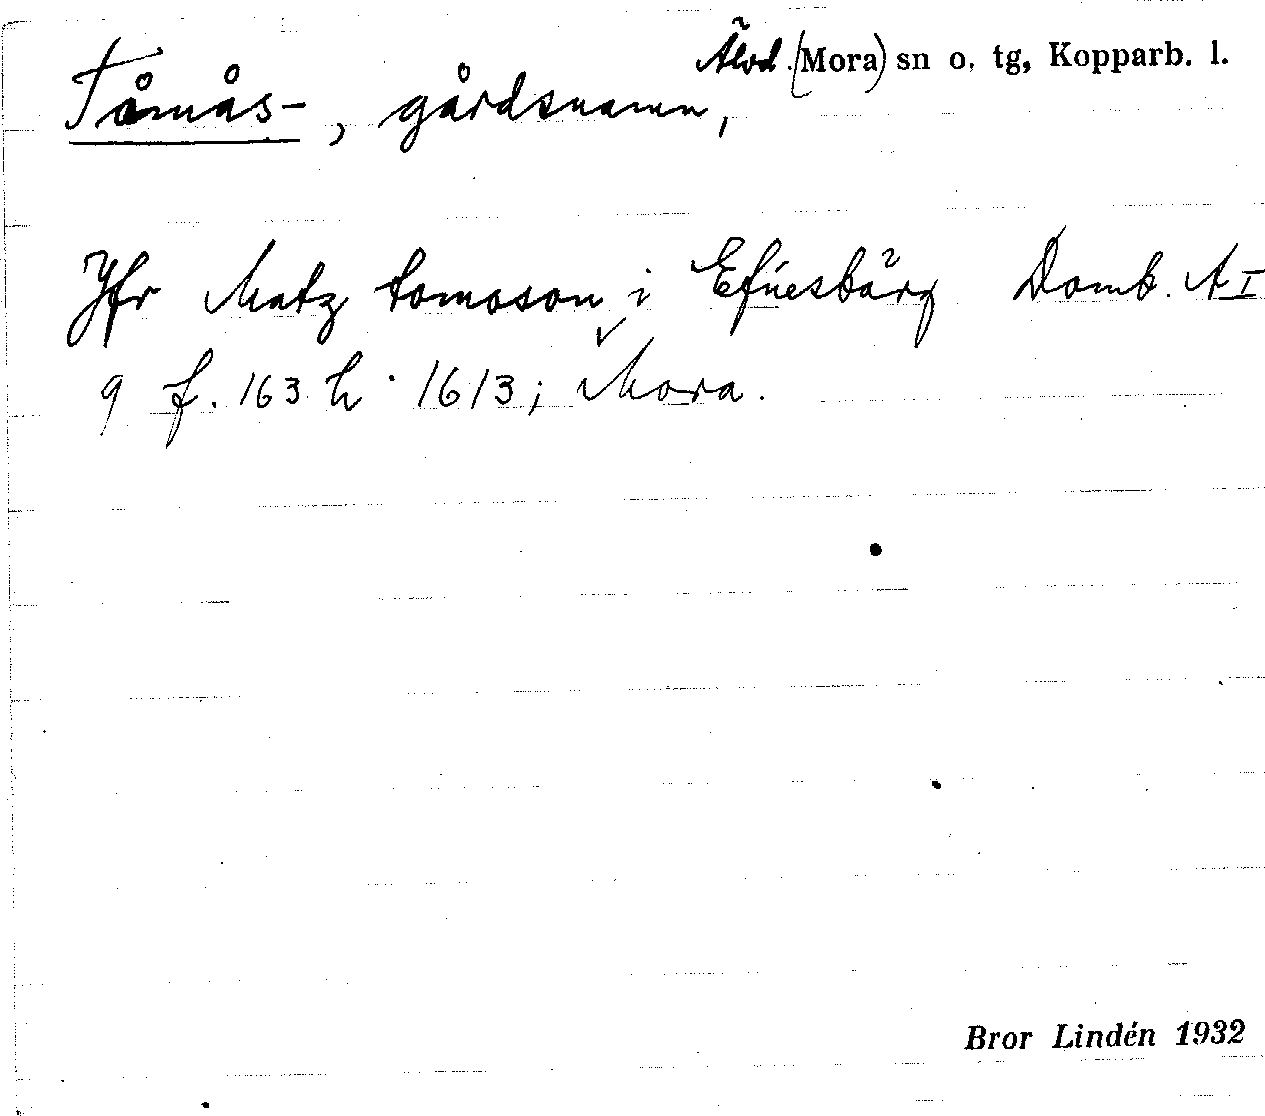 Älvd. (Mora) sn o. tg, Kopparb. l.
Tåmås-, gårdsnamn,
Jfr Matz tomoson i Efúesbärg Domb. A I
9 f. 163 h. 1613; Mora.
Bror Lindén 1932